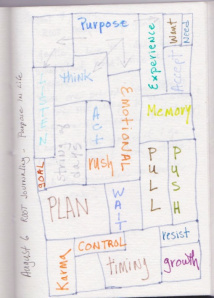 Purpose
Experience
Want
Need
Accept
think
EMOTIONAL
Memory
ACT
rush
GOAL
PLAN
WAIT
PULL
PUSH
CONTROL
resist
Karma
timing
growth
August 6 ROOT Journaling - Purpose in Life